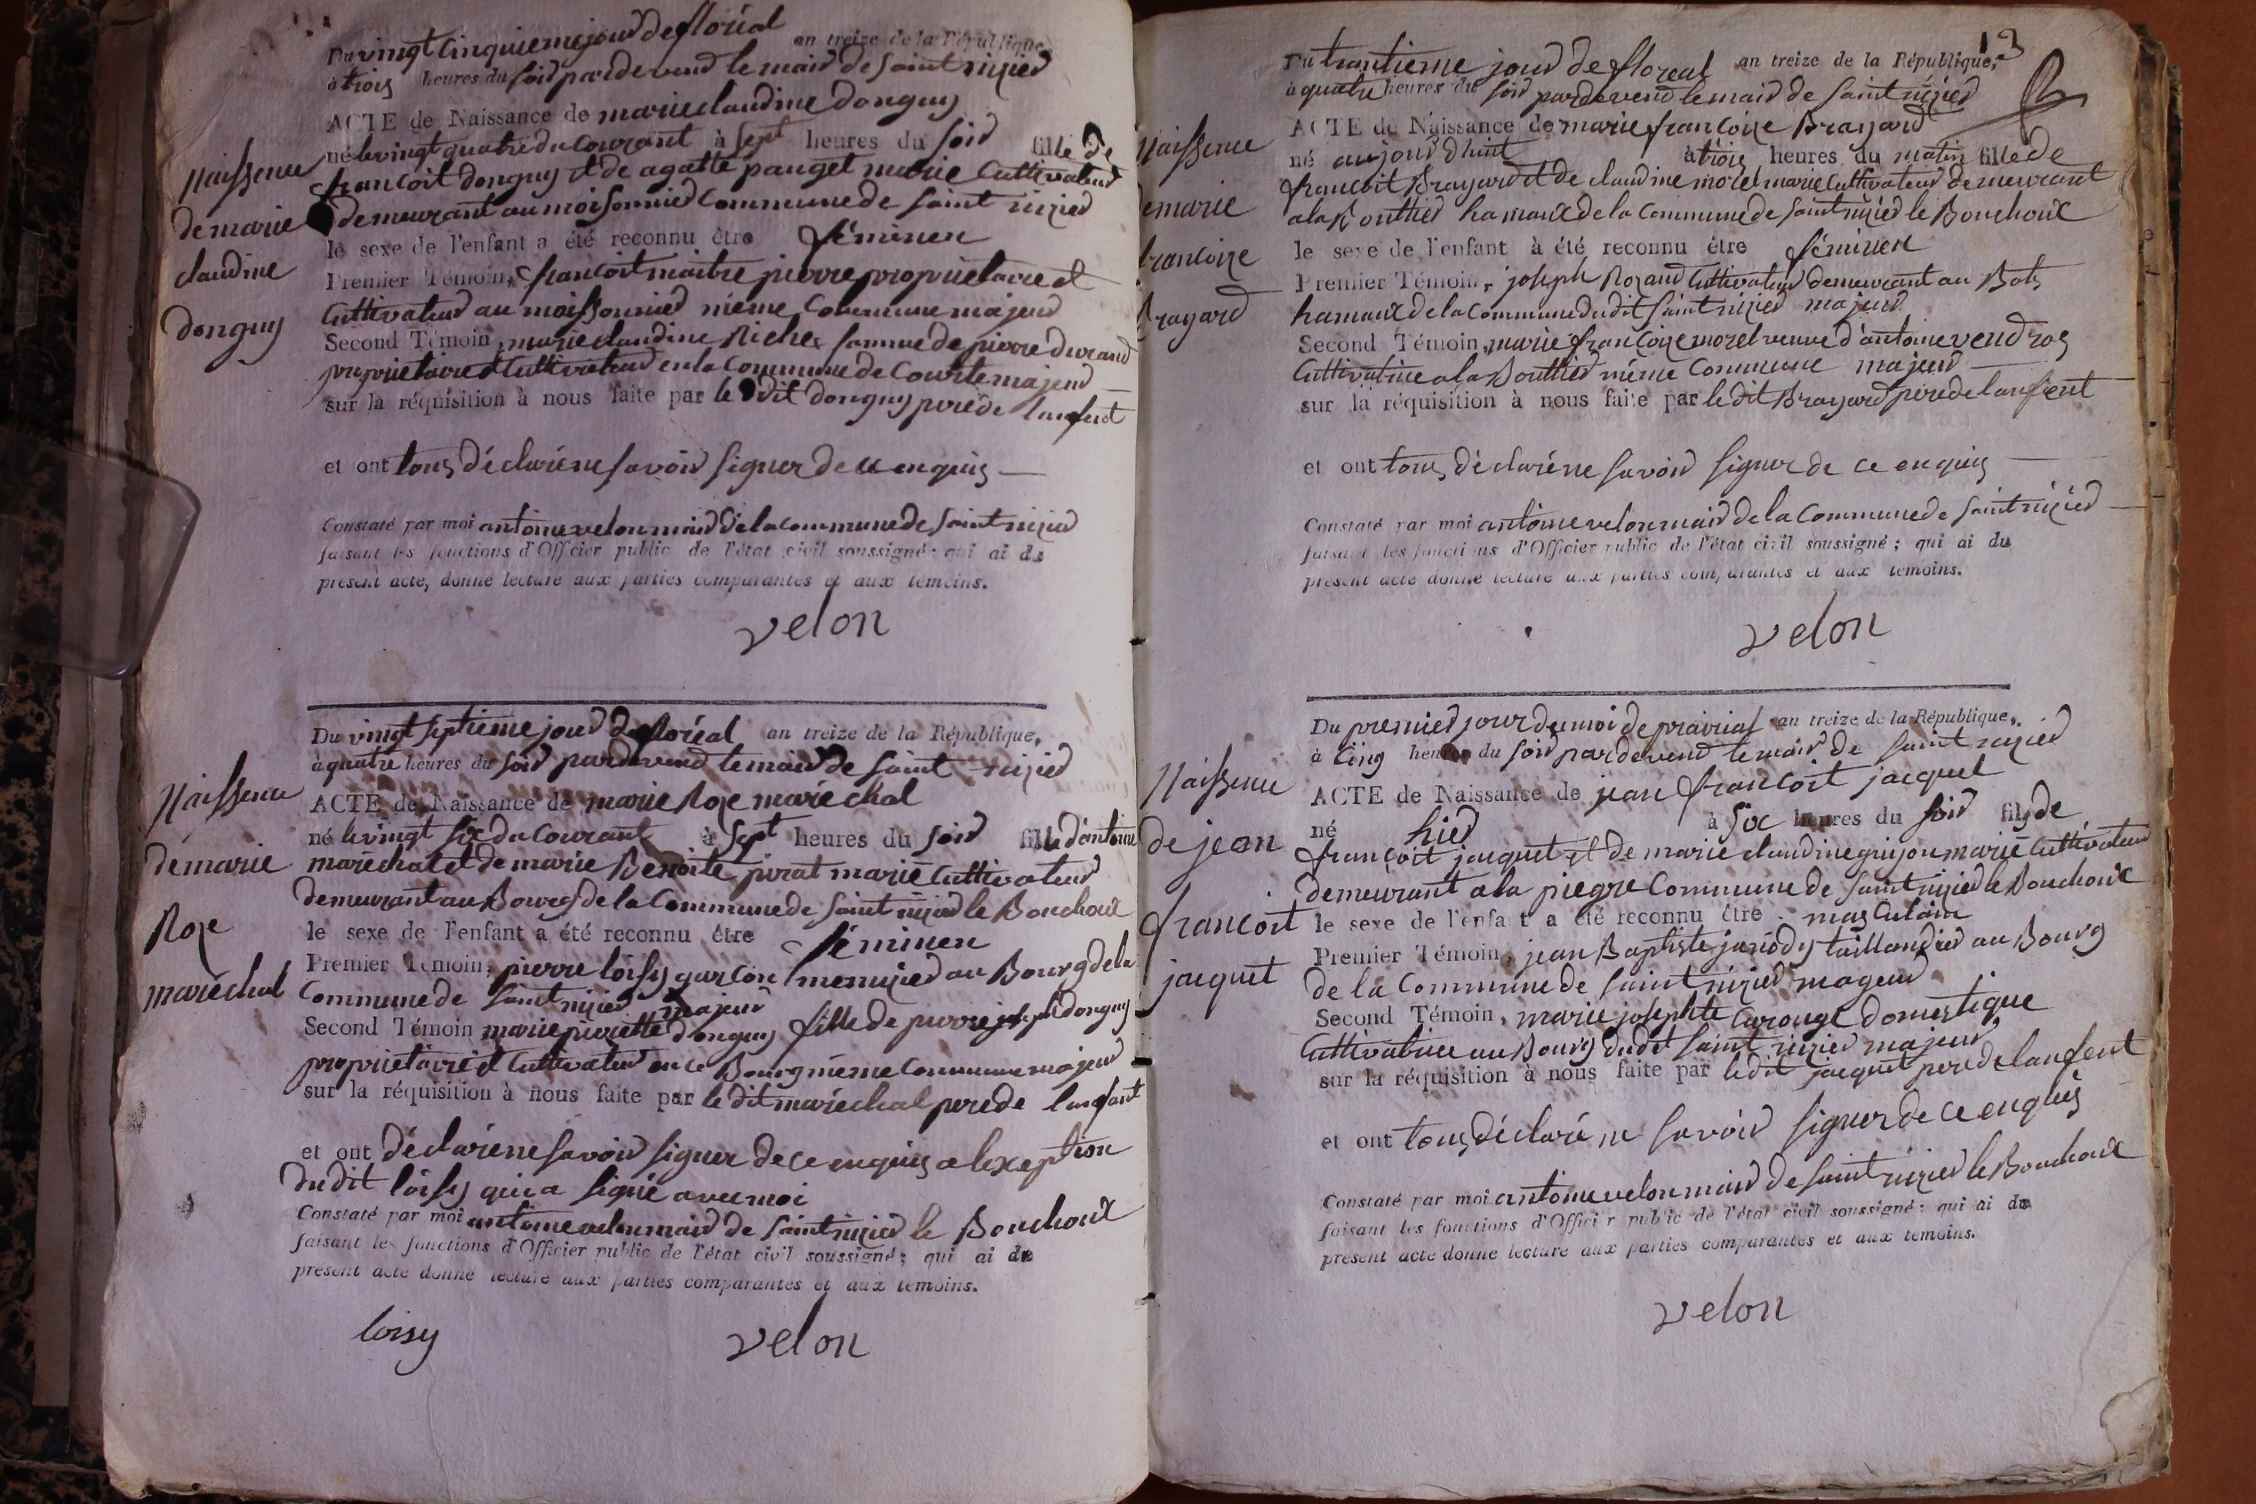 Du vingt cinquieme jour de floréal an treize de la République,
à trois heures du soir pardevend le maird de saint nizied
ACTE de Naissance de marie claudine donguy
né le vingt quatre du courant à sept heures du soir fille de
francoit donguy et de agatte pauget marié Cultivateur
demeurant au moisonnied Commune de saint nizied
le sexe de l'enfant a été reconnu être féminen
Premier Témoin, francoit maitre pierre proprietaire et
Cultivateur au moissonnied méme Commune majeur
Second Témoin, marie claudine Riche famme de pierre durand
proprietaire et Cultivateur en la Commune de Courte majeur
sur la réquisition à nous faite par le dit donguy pere de lanfent
et ont tous déclaré ne savoir signer de ce enquis
Constaté par moi antoine velon maird de la commune de saint nizied
faisant les fonctions d'Officier public de l'état civil soussigné; qui ai du
présent acte, donné lecture aux parties comparantes et aux témoins.
velon
Naissence
de marie
claudine
donguy
Du vingt septieme jour de floréal an treize de la République,
à quatre heures du soir pardevend le maird de saint nizied
ACTE de Naissance de marie Roze maréchal
né le vingt six du Courant à sept heures du soir fille d'antoine
maréchal et de marie Benoite pirat marié Cultivateur
demeurant au Bourg de la Commune de saint nizied le Bouchoux
le sexe de l'enfant a été reconnu être féminen
Premier Témoin, pierre loisy garcon menuzied au Bourg de la
Commune de saint nizied majeur
Second Témoin marie pierrette donguy fille de pierre joseph donguy
proprietaire et Cultivateur en ce Bourg méme Commune majeur
sur la réquisition à nous faite par le dit maréchal pere de lanfant
et ont déclaré ne savoir signer de ce enquis a lexeption
du dit loisy qui a signé avec moi
Constaté par moi antoine velon maird de saint nizied le Bouchoux
faisant les fonctions d'Officier public de l'état civil soussigné; qui ai du
présent acte donné lecture aux parties comparantes et aux témoins.
loisy velon
Naissence
de marie
Roze
maréchal
13
Du trantieme jour de floreal an treize de la République,
à quatre heures du soir pardevend le maird de saint nizied
ACTE de Naissance de marie francoize Brayard
né aujourd'huit à trois heures du matin fille de
francoit Brayard et de claudine morel marié Cultivateur demeurant
a la Bouthier hamaux de la Commune de saint nizied le Bouchoux
le sexe de l'enfant à été reconnu être féminen
Premier Témoin, joseph Rozand Cultivateur demeurant au Bots
hamaux de la Commune dudit saint nizied majeur
Second Témoin, marie francoize morel veuve d'antoine vendros
Cultivatrice a la Bouthier méme Commune majeur
sur la réquisition à nous faite par le dit Brayard pere de lanfent
et ont tous déclaré ne savoir signer de ce enquis
Constaté par moi antoine velon maird de la Commune de saint nizied
faisant les fonctions d'Officier public de l'état civil soussigné; qui ai du
présent acte donné lecture aux parties comparantes et aux témoins.
velon
Naissence
de marie
francoize
Brayard
Du premier jour du moi de prairial an treize de la République,
à cinq heures du soir pardevend le maird de saint nizied
ACTE de Naissance de jean francoit jacquet
né hier à six heures du soir fils de
françoit jacquet et de marie claudine guijon marié Cultivateur
demeurant a la piegre Commune de saint nizied le Bouchoux
le sexe de l'enfant a été reconnu être masculain
Premier Témoin, jean Baptiste jarrody taillandier au Bourg
de la Commune de saint nizied mageur
Second Témoin, marie josephte Carouge domestique
Cultivatrice au Bourg dudit saint nizied majeur
sur la réquisition à nous faite par le dit jacquet pere de lanfent
et ont tous déclaré ne savoir signer de ce enquis
Constaté par moi antoine velon maird de saint nizied le Bouchoux
faisant les fonctions d'Officier public de l'état civil soussigné; qui ai du
présent acte donné lecture aux parties comparantes et aux témoins.
velon
Naissence
de jean
francoit
jacquet